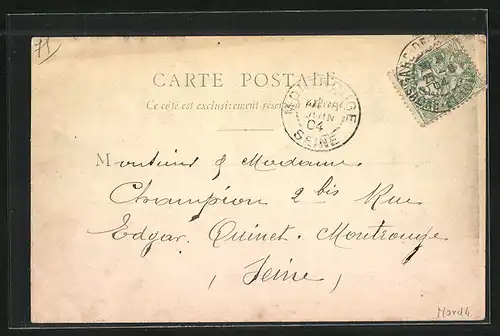 71
CARTE POSTALE
Ce côté est exclusivement réservé
MONTROUGE
JUIN
04
SEINE
Monsieur & Madame
Champion 2 bis Rue
Edgar. Quinet. Montrouge
(Seine)